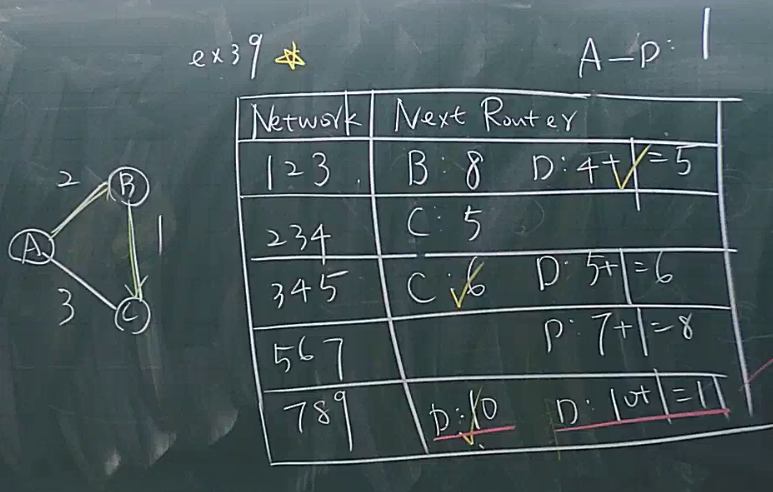 ex39 ☆
A-D: 1
Network Next Router
123 B: 8 D: 4+1=5
234 C: 5
345 C: 6 D: 5+1=6
567 D: 7+1=8
789 D: 10 D: 10+1=11
2 B
A 1
3 C